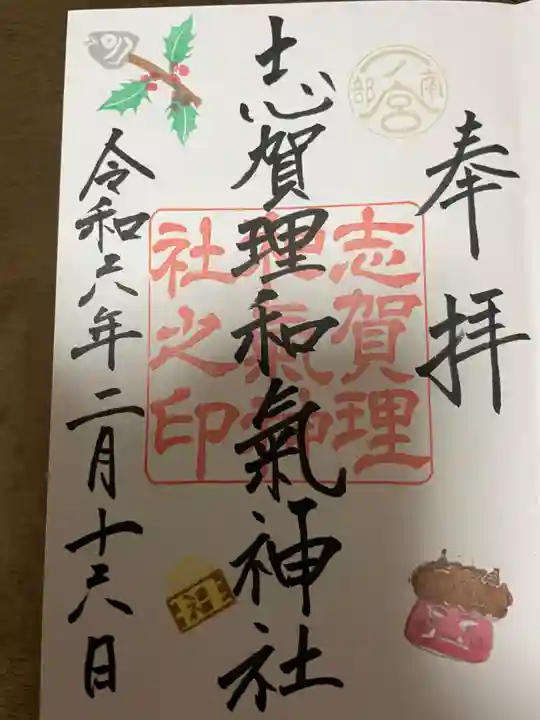 奉拝
南部一ノ宮
志賀理和氣神社
志賀理
和氣神
社之印
令和六年二月十六日